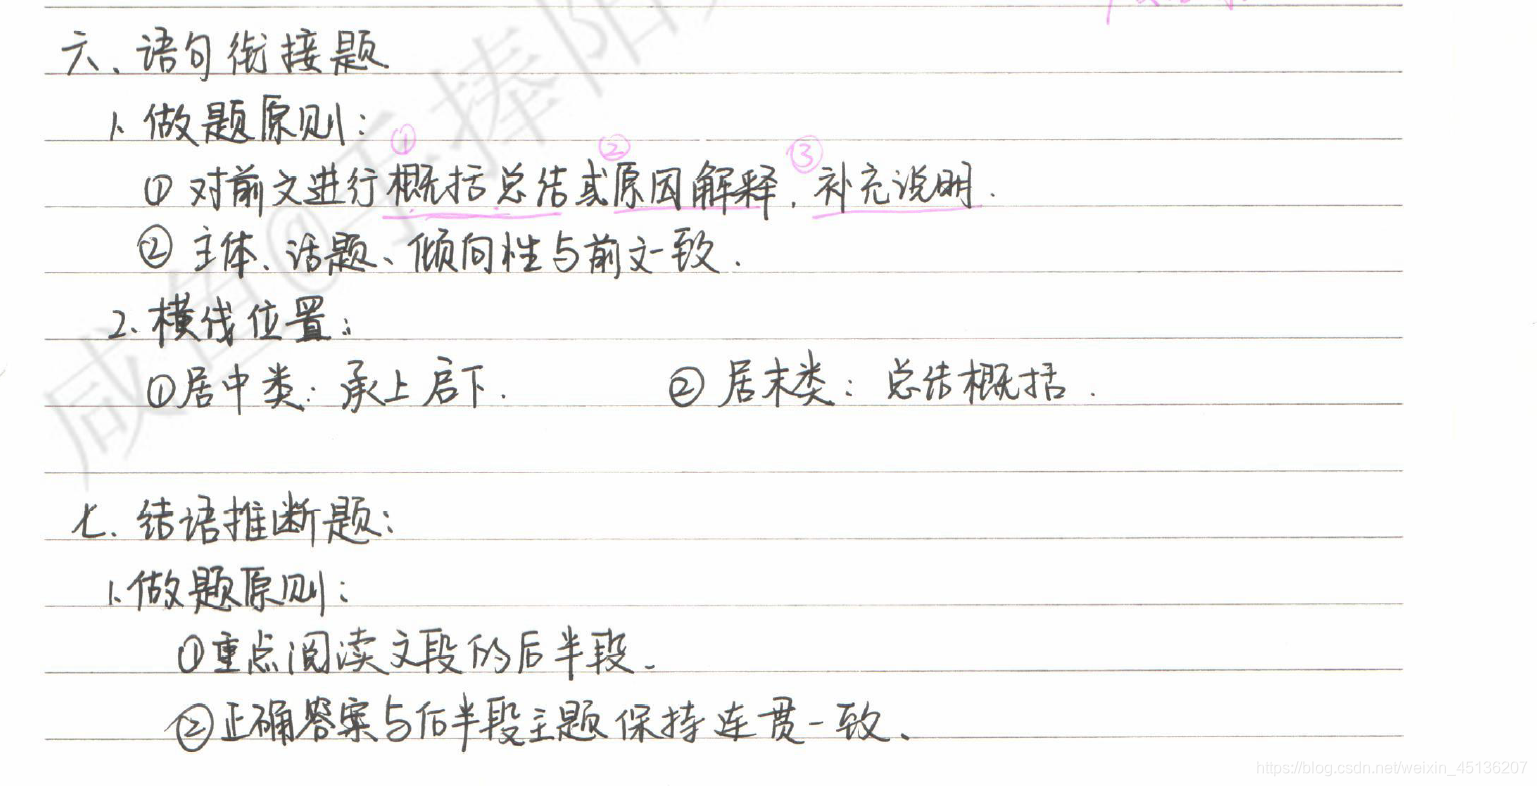 六、语句衔接题
1. 做题原则：
① ② ③
① 对前文进行概括总结或原因解释，补充说明.
② 主体、话题、倾向性与前文一致.
2. 横线位置：
①居中类：承上启下. ② 居末类：总结概括.
七、结语推断题：
1.做题原则：
①重点阅读文段的后半段.
②正确答案与后半段主题保持连贯一致.
咸鱼@手捧阳
https://blog.csdn.net/weixin_45136207